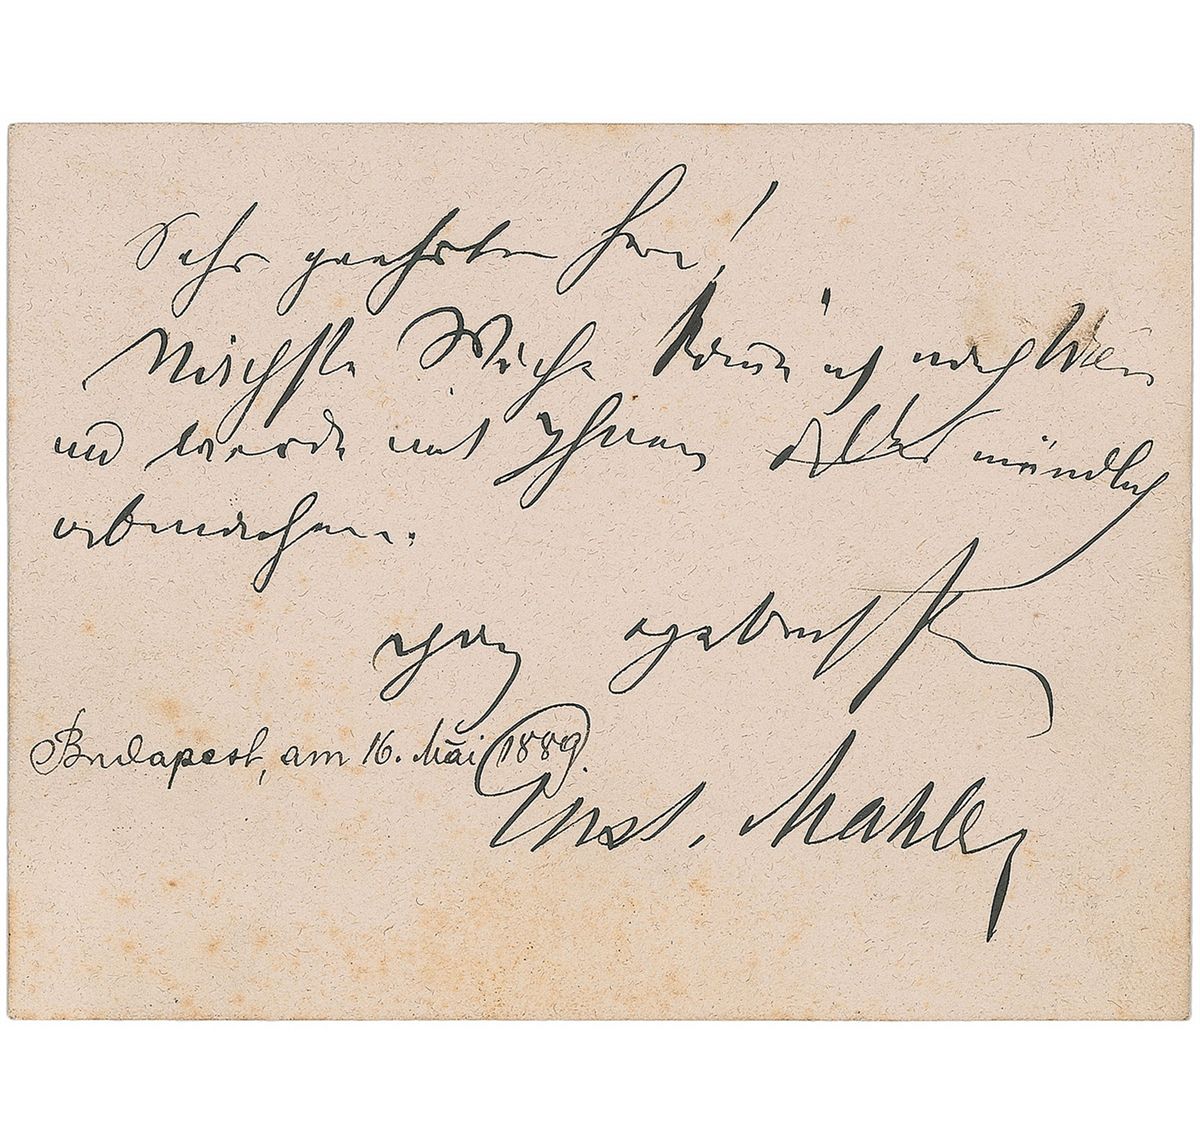 Sehr geehrter Herr!
Nächste Woche komme ich nach Wien
und werde mit Ihnen alles mündlich
abmachen.
Ihr ergebenster
Budapest, am 16. Mai 1889.
Gust. Mahler